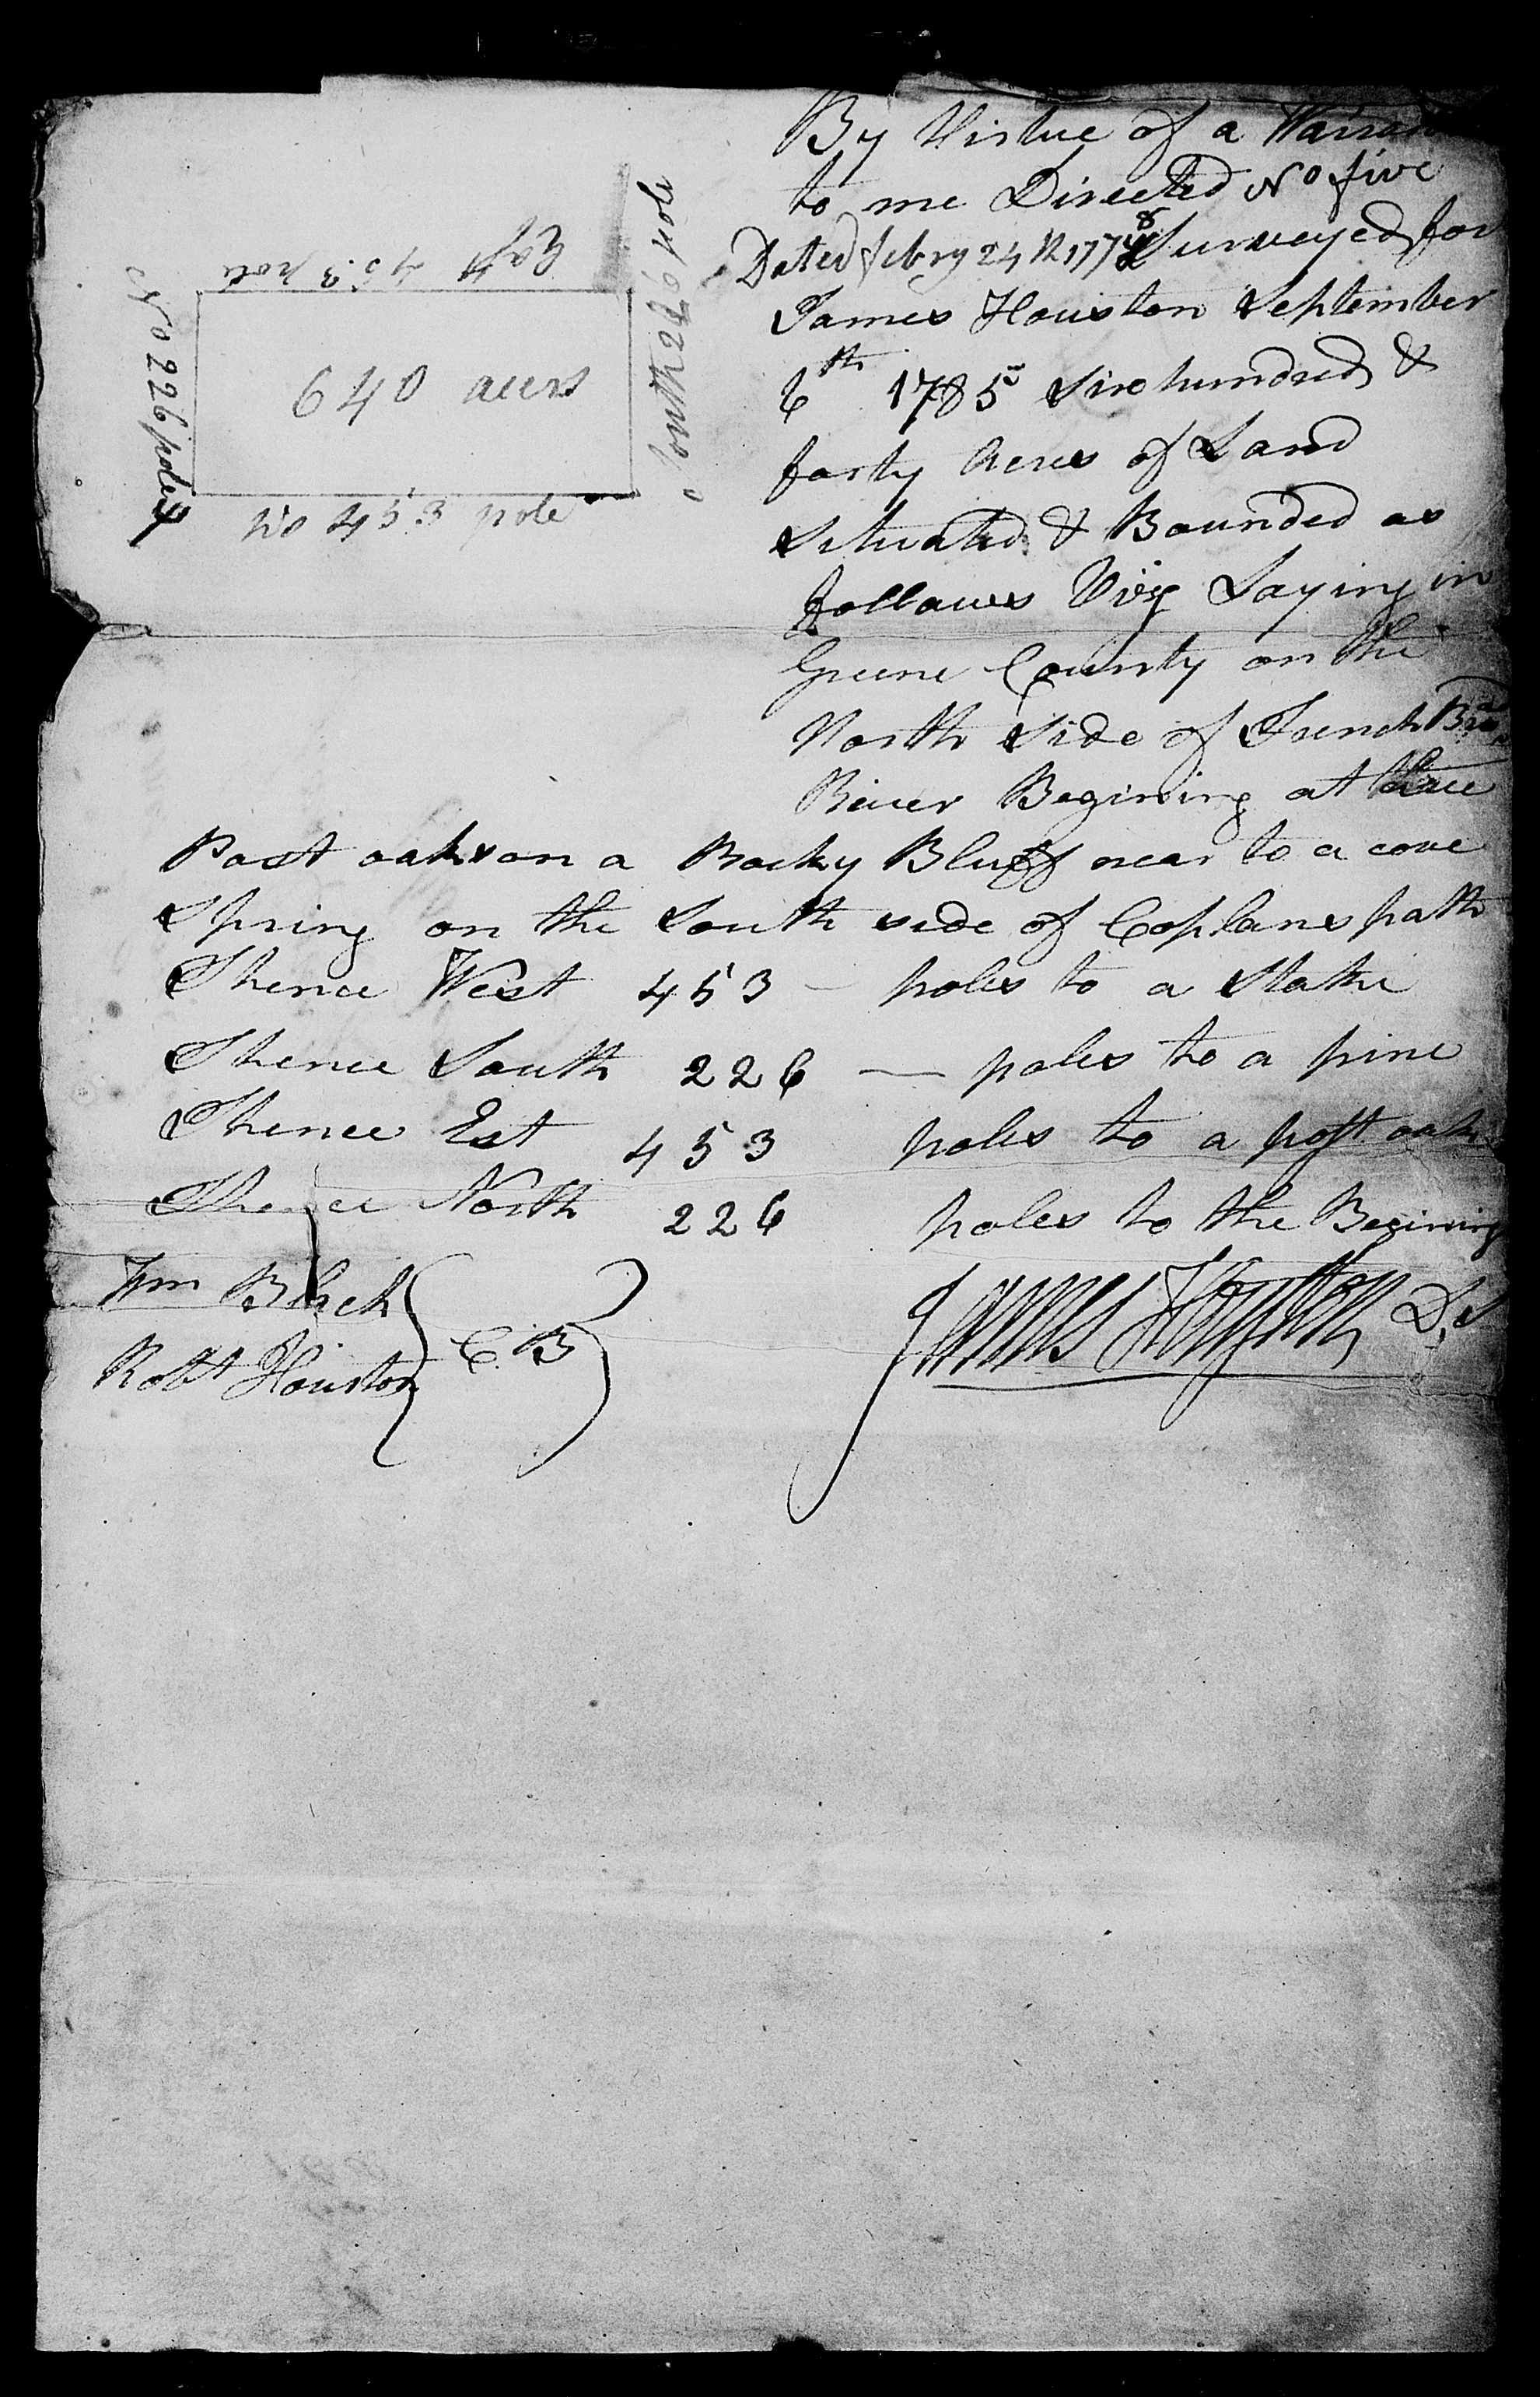 By Virtue of a Warran
to me Directed No five
Dated febry 24th 1778 Surveyed for
James Houston September
6th 1785 Six hundred &
forty Acres of Land
Situated & Bounded as
follows Viz Laying in
Greene County on the
North Side of French Broad
River Begining at three
Post oaks on a Rocky Bluff near to a cove
Spring on the South side of Coplans path
Thence West 453 — poles to a Stake
Thence South 226 — poles to a pine
Thence Est 453 poles to a post oak
Thence North 226 poles to the Begining
Wm Black
Robt Houston
C. B
James Houston D. S
East 453 pole
South 226 pole
640 acers
No 226 poles
453 pole